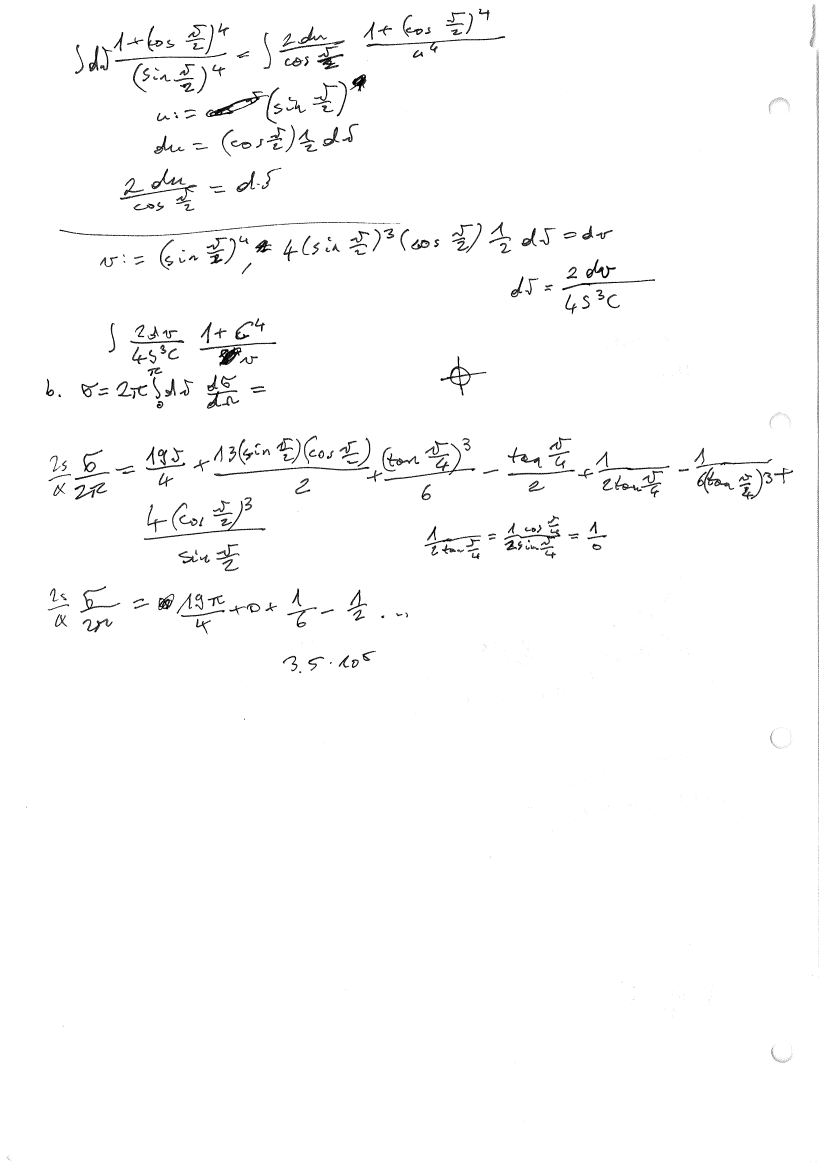 ∫dϑ (1+(cos ϑ/2)^4)/((sin ϑ/2)^4) = ∫ (2 du)/(cos ϑ/2) (1+(cos ϑ/2)^4)/(u^4)
u := (sin ϑ/2)
du = (cos ϑ/2) 1/2 dϑ
(2 du)/(cos ϑ/2) = dϑ
v := (sin ϑ/2)^4, 4(sin ϑ/2)^3 (cos ϑ/2) 1/2 dϑ = dv
dϑ = (2 dv)/(4S^3C)
∫ (2dv)/(4S^3C) (1+C^4)/v
b. σ = 2π ∫_0^π dϑ dσ/dΩ =
2s/α σ/2π = 19ϑ/4 + (13(sin ϑ/2)(cos ϑ/2))/2 + ((tan ϑ/4)^3)/6 − (tan ϑ/4)/2 + 1/(2tan ϑ/4) − 1/(6(tan ϑ/4)^3) +
(4(cos ϑ/2)^3)/(sin ϑ/2)
1/(2 tan ϑ/4) = (1 cos ϑ/4)/(2 sin ϑ/4) = 1/0
2s/α σ/2π = 19π/4 + 0 + 1/6 − 1/2 ...
3.5 · 10^5